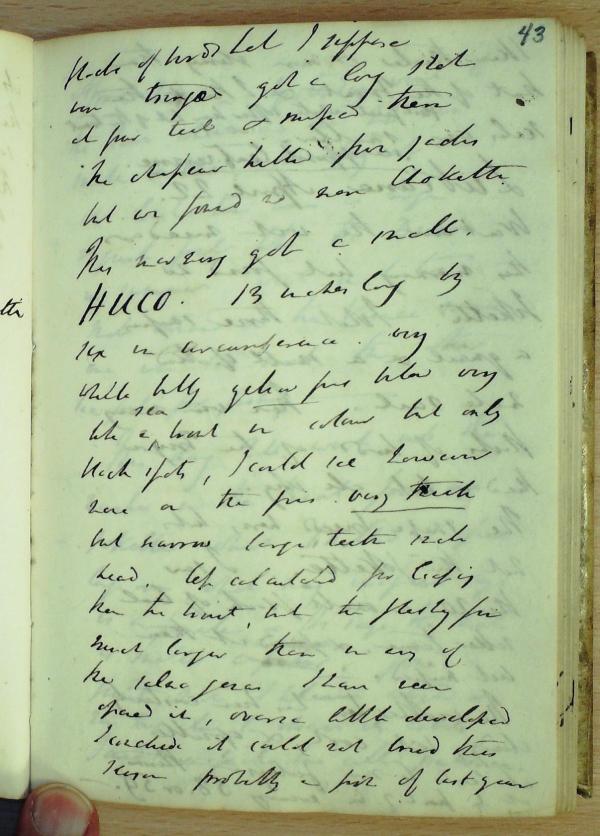 43
flocks of birds but I suppose
got a long shot
at four teal & missed them
the chasseur killed four jacks
but we found no more
This morning got a small
HUCO. 13 inches long by
six in circumference. very
white belly yellow fins below very
like a sea trout in colour but only
black spots, I could see however
none on the fins. very thick
but narrow large teeth
head. less calculated for leaping
than the trout, but the fleshy fin
much larger than in any of
the salmo genus I have seen
opened it, ovaria little developed
I concluded it could not breed this
season probably a fish of last year